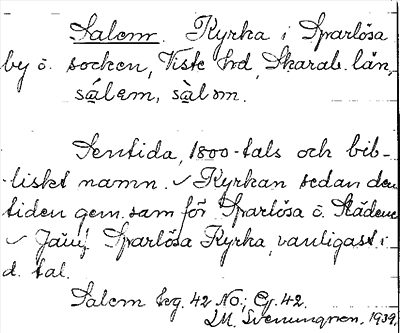 Salem. Kyrka i Sparlösa
by o. socken, Viste hd, Skarab. län,
sálem, sàlom.
Sentida, 1800-tals och bib-
liskt namn. Kyrkan sedan den
tiden gem. sam för Sparlösa o. Städene
Jämf Sparlösa Kyrka, vanligast i
d. tal.
Salem Seg. 42 No.; Cg. 42.
I.M. Svenungson. 1939.